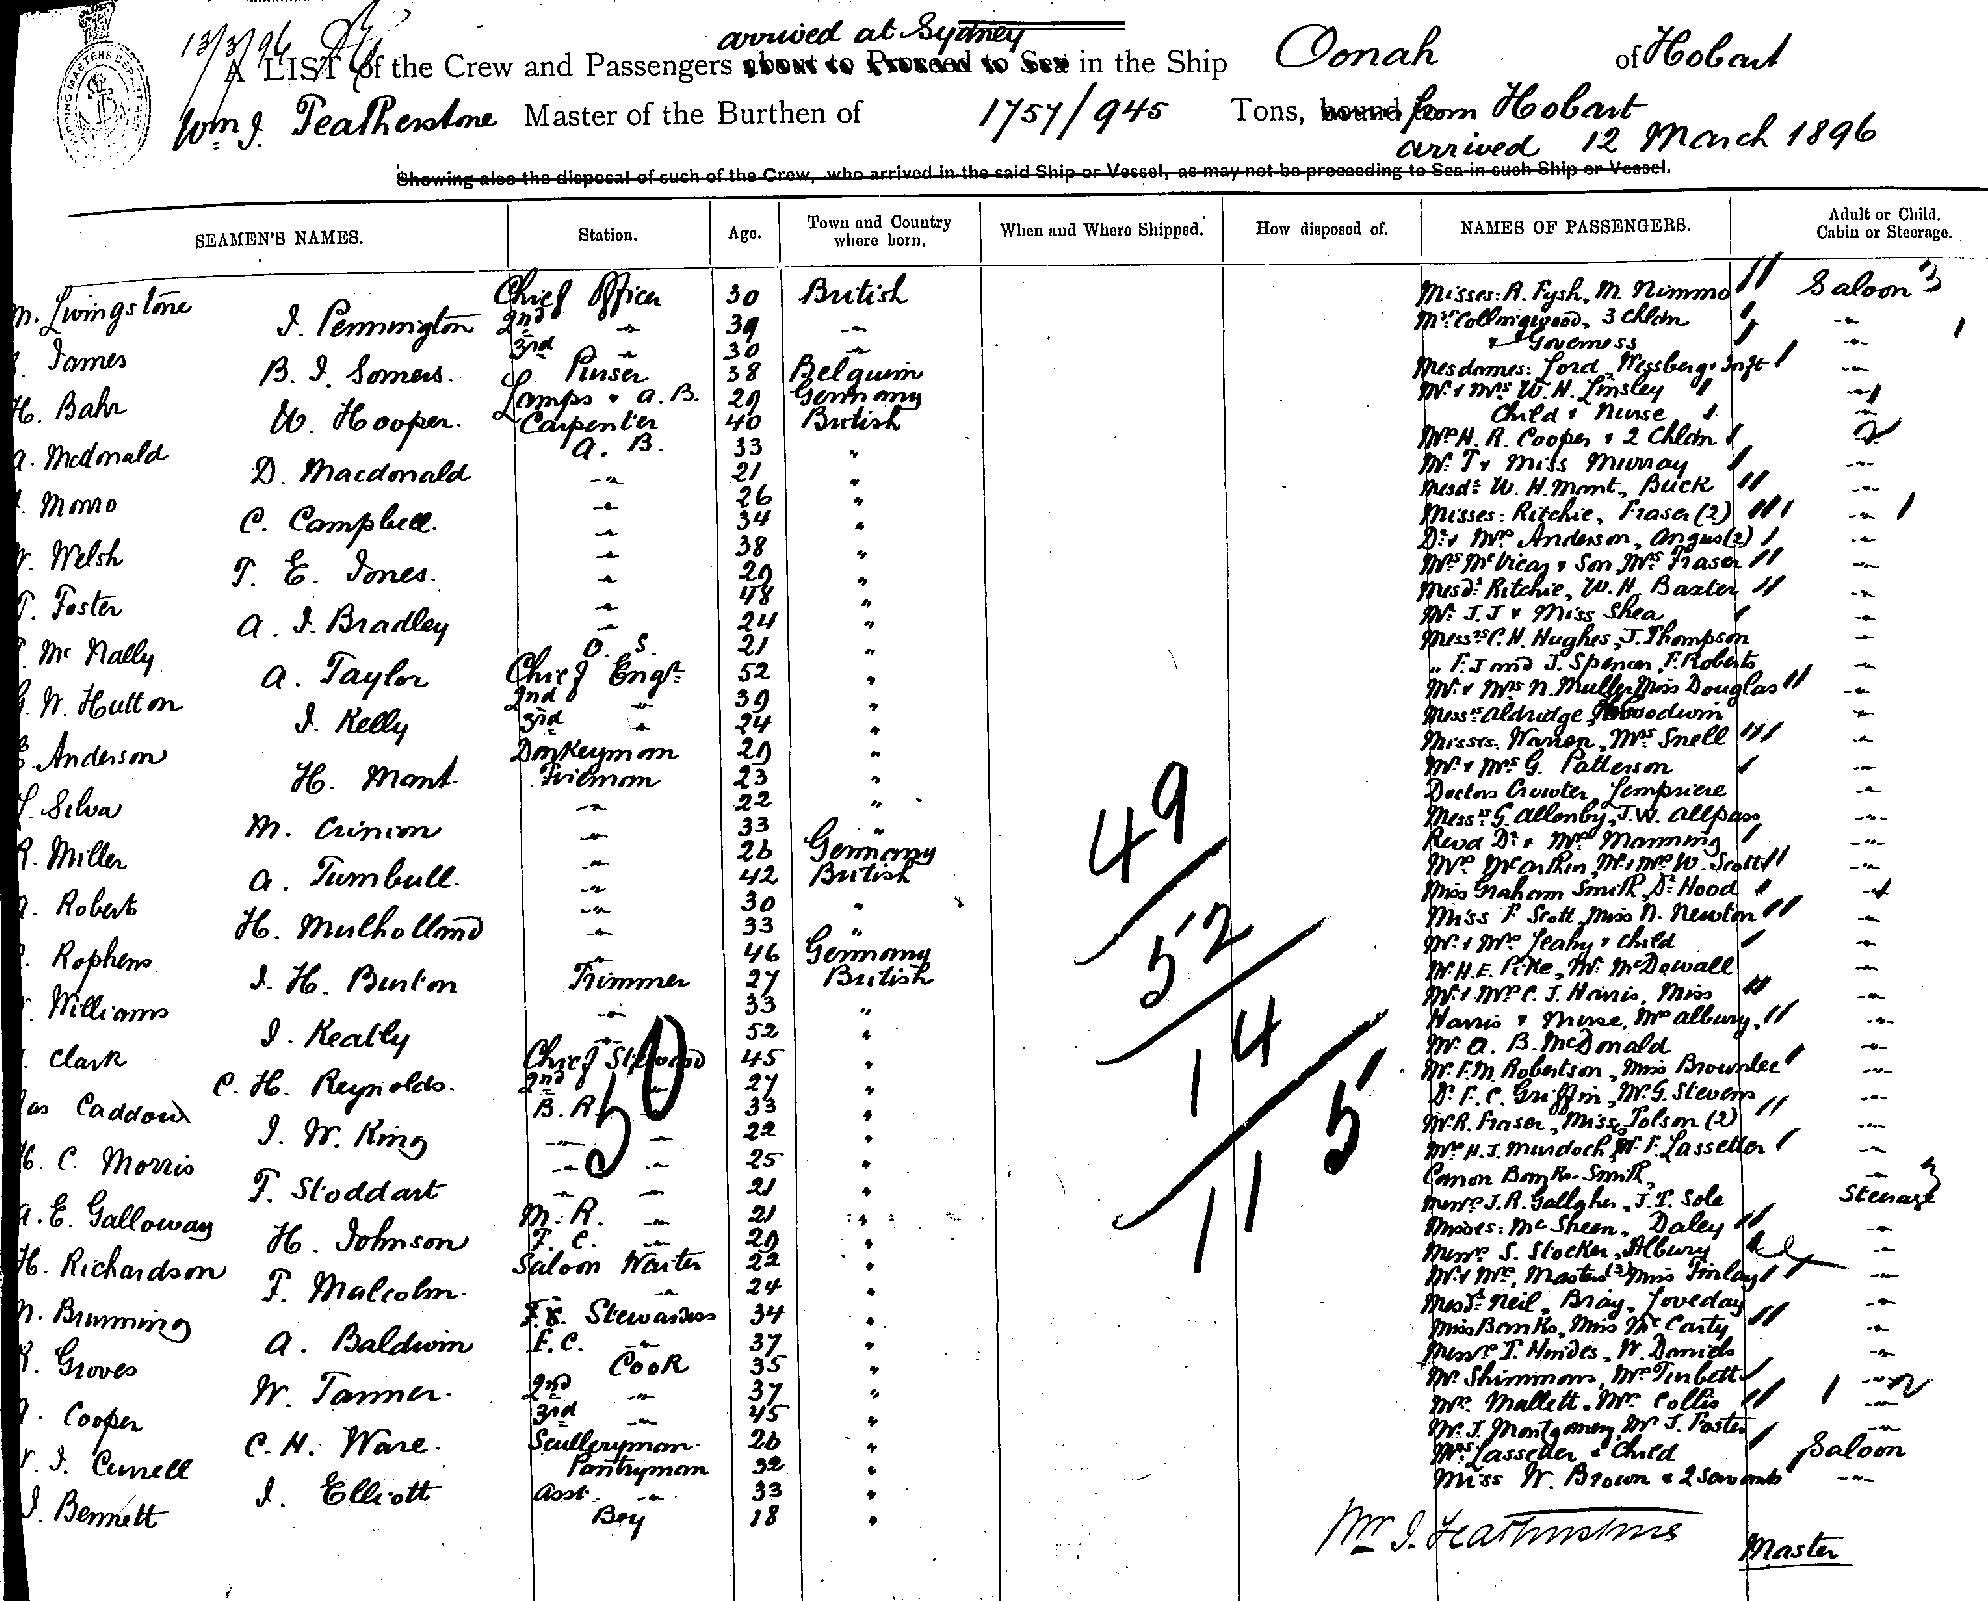 13/3/96
arrived at Sydney
A LIST of the Crew and Passengers about to Proceed to Sea in the Ship Oonah of Hobart
Wm J. Featherstone Master of the Burthen of 1757/945 Tons, bound from Hobart
arrived 12 March 1896
Showing also the disposal of such of the Crew, who arrived in the said Ship or Vessel, as may not be proceeding to Sea in such Ship or Vessel.
SEAMEN'S NAMES. Station. Age. Town and Country where born. When and Where Shipped. How disposed of. NAMES OF PASSENGERS. Adult or Child. Cabin or Steerage.
M. Livingstone Chief Officer 30 British Misses: A. Fysh, M. Nimmo Saloon 3
J. Pennington 2nd " 39 " Mrs Collingwood, 3 Chldn " 1
James 3rd " 30 " & Governess "
B. J. Somers. Purser 38 Belguim Mesdames: Lord, Wessberg & Inft "
H. Bahr Lamps & A.B. 29 Germany Mr & Mrs W. H. Linsley "
W. Hooper. Carpenter 40 British Child & Nurse "
A. McDonald A. B. 33 " Mrs H. R. Cooper & 2 Chldn 2
D. Macdonald " 21 " Mr T & Miss Murray "
Monro " 26 " Mesds W. H. Mant, Buck "
C. Campbell. " 34 " Misses: Ritchie, Fraser (2) " 1
W. Welsh " 38 " Dr & Mrs Anderson, Angus (2) "
T. E. Jones. " 29 " Mrs McVicar & Son, Mrs Fraser "
T. Foster " 48 " Mesds Ritchie, W. H. Baxter "
A. J. Bradley " 24 " Mr J. J & Miss Shea "
McNally O. S. 21 " Messrs C. H. Hughes, J. Thompson "
A. Taylor Chief Engr 52 " " F. J and J. Spencer, F. Roberts "
G. W. Hutton 2nd " 39 " Mr & Mrs N. Muller, Miss Douglas "
J. Kelly 3rd " 24 " Messrs Aldridge, Goodwin "
Anderson Donkeyman 29 " Misses Warren, Mrs Snell "
H. Mant Fireman 23 " Mr & Mrs G. Patterson "
Silva " 22 " Doctors Crowter, Lempriere "
M. Crinion " 33 " Messrs G. Allonby, J. W. Allpass "
R. Miller " 26 Germany Revd Dr & Mrs Manning "
A. Turnbull. " 42 British Mr & Mrs W. Scott "
A. Robert " 30 " Miss Graham Smith, Dr Hood "
H. Mulholland " 33 " Miss F Scott, Miss N. Newton "
Rophens " 46 Germany Mr & Mrs Leahy & child "
J. H. Burton Trimmer 27 British Mr H. E. Pike, Mr McDowall "
Williams " 33 " Mr & Mrs C. J. Harris, Miss "
J. Keatly " 52 " Harris & Nurse, Mrs Albury. "
Clark Chief Steward 45 " Mr A. B. McDonald "
C. H. Reynolds. 2nd " 27 " Mr F. M. Robertson, Miss Brownlee "
Caddow B. R. 33 " Dr F. C. Griffin, Mr G. Stevens "
J. W. King " " 22 " Mr R. Fraser, Miss Tolson (2) "
H. C. Morris " " 25 " Mrs H. J. Murdoch, Mr F. Lassetter "
T. Stoddart " " 21 " Canon Banks-Smith, "
A. E. Galloway M. R. " 21 " Messrs J. R. Gallagher, J. T. Sole Steerage 3
H. Johnson F. C. " 29 " Misses: McSheen, Daley "
H. Richardson Saloon Waiter 22 " Messrs S. Stocker, Albury "
F. Malcolm " 24 " Mr & Mrs, Masters (3) Miss Finlay "
N. Brumming F. S. Stewardess 34 " Mesds Neil, Bray, Loveday "
A. Baldwin F. C. " 37 " Miss Banks, Miss McCarty "
R. Groves Cook 35 " Messrs T. Hindes, W. Daniels "
W. Tanner. 2nd " 37 " Mr Shimmons, Mrs Tinbett 1 " 2
Cooper 3rd " 45 " Mrs Mallett, Mr Collis "
C. H. Ware. Sculleryman 26 " Mr J. Montgomery, Mr J. Foster "
Curnell Pantryman 32 " Mrs Lassetter & Child Saloon
J. Elliott Asst " 33 " Miss W. Brown & 2 Servants "
J. Bennett Boy 18 "
50
49
52
14
115
Wm J. Featherstone
Master